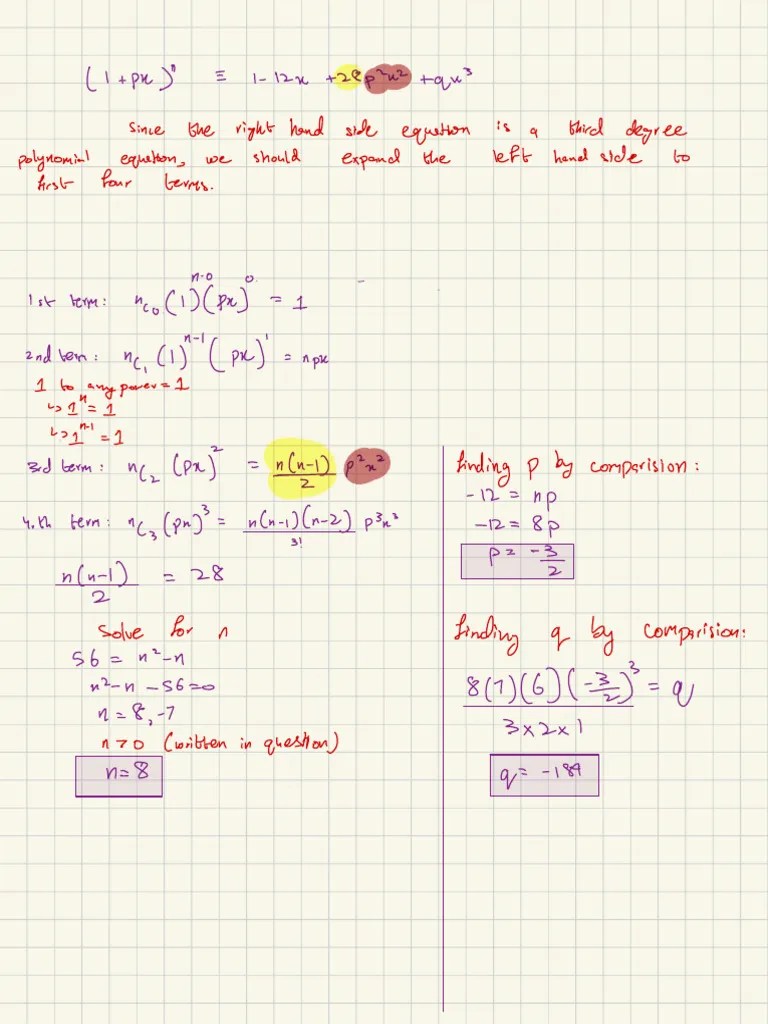 (1+px)ⁿ ≡ 1-12x +28p²x² +qx³
Since the right hand side equation is a third degree
polynomial equation, we should expand the left hand side to
first four terms.
1st term: nC₀(1)ⁿ⁻⁰(px)⁰ = 1
2nd term: nC₁(1)ⁿ⁻¹(px)¹ = npx
1 to any power = 1
↳ 1ⁿ = 1
↳ 1ⁿ⁻¹ = 1
3rd term: nC₂(px)² = n(n-1)/2 p²x²
4.th term: nC₃(px)³ = n(n-1)(n-2)/3! p³x³
n(n-1)/2 = 28
Solve for n
56 = n²-n
n²-n-56=0
n=8,-7
n>0 (written in question)
n=8
finding p by comparision:
-12 = np
-12 = 8p
p = -3/2
finding q by comparision:
8(7)(6)(-3/2)³/3×2×1 = q
q = -189